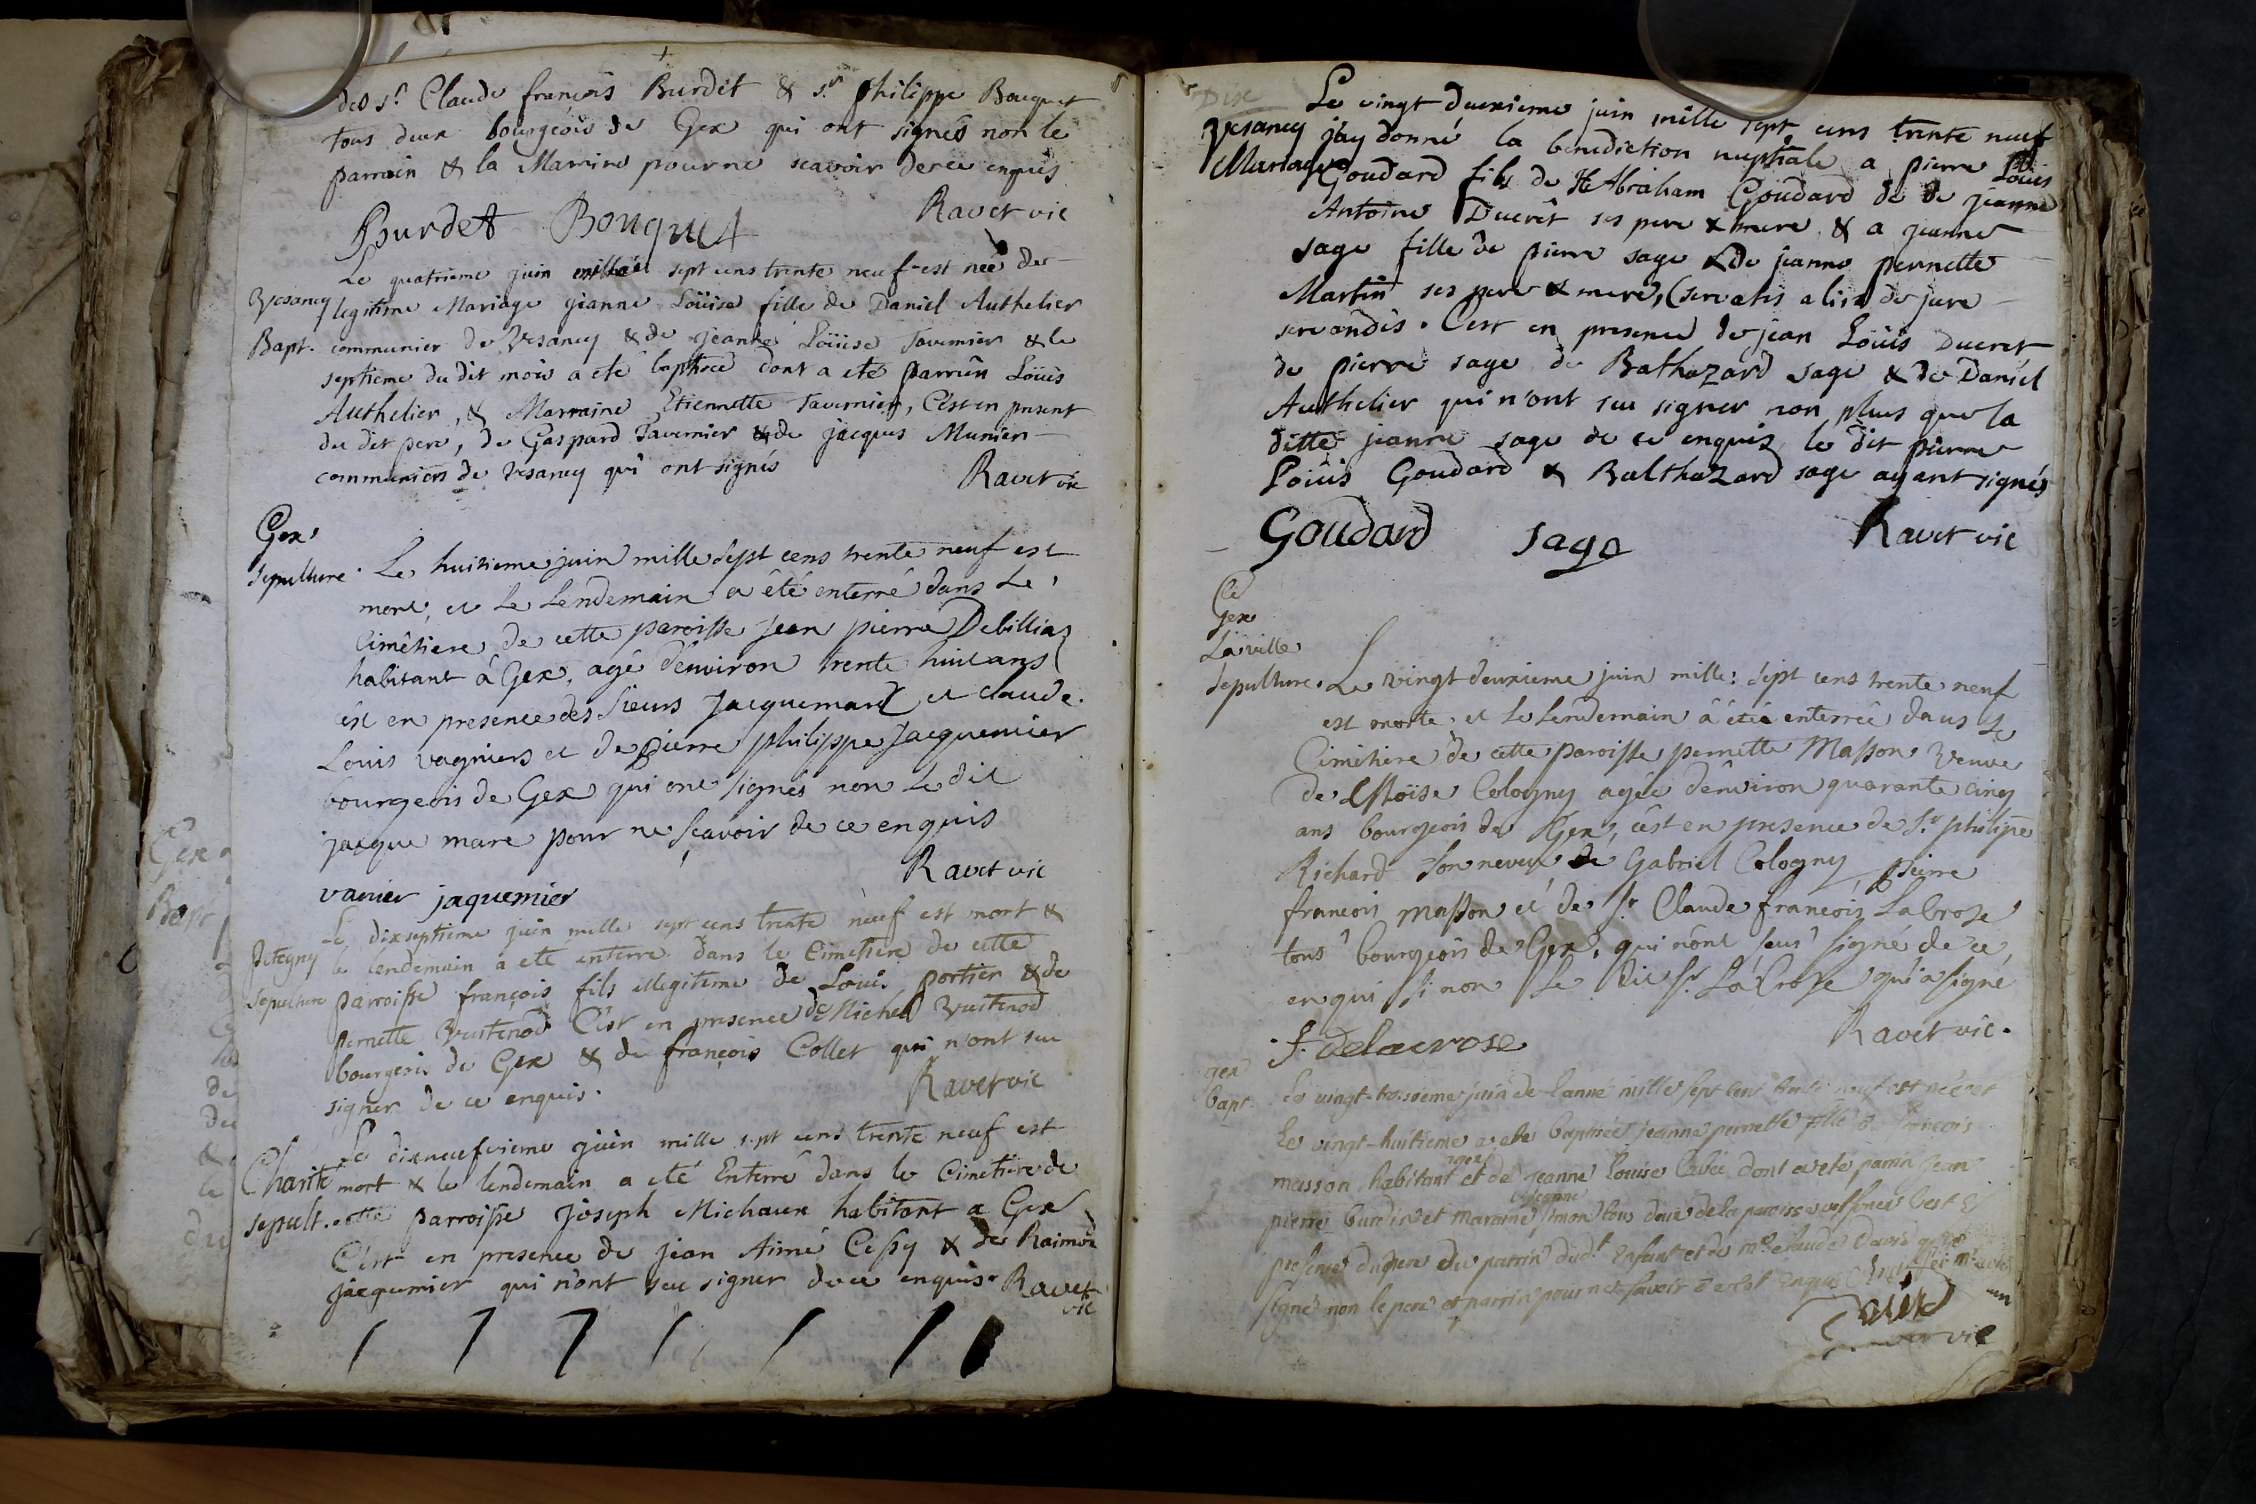 des sr. Claude françois Burdet & sr. philippe Bouquet
tous deux bourgeois de Gex qui ont signés non le
parrain & la Marrine pour ne scavoir de ce enquis
Ravet vic
Burdet Bouquet
Le quatrieme juin mille sept cens trente neuf est née de
Vesancy legitime Mariage jeanne Loüise fille de Daniel Authelier
Bapt. communier de Vesancy & de jeanne Loüise Tavernier & le
septieme du dit mois a eté baptisée dont a eté parrin Loüis
Authelier, & Marraine Etiennette Tavernier, C'est en present
du dit pere, de Gaspard Tavernier & de jacques Munier
communiers de Vesancy qui ont signés
Ravet vic
Gex
sepulture. Le huitieme juin mille sept cens trente neuf est
mort, et Le Lendemain a été enterré dans Le
Cimêtiere de cette paroisse jean pierre Debillias
habitant à Gex, agé d'environ trente huit ans
c'est en presence des sieurs Jacquemard et claude
Louis vagniers et de pierre philippe Jacquemier
bourgeois de Gex qui ont signés non Le dit
jacque mare pour ne sçavoir de ce enquis
Ravet vic
vanier jaquemier
Le dixseptieme juin mille sept cens trente neuf est mort &
Pitegny le lendemain a eté enterré dans le Cimetiere de cette
sepulture parroisse françois fils illegitime de Louis portier & de
pernette Vuitenod C'est en presence de Michel Vuitenod
bourgeois de Gex & de françois Collet qui n'ont seu
signer de ce enquis.
Ravet vic
Le dixneufvieme juin mille sept cens trente neuf est
Charité mort & le lendemain a eté Enterré dans le Cimetiere de
sepult. cette parroisse joseph Michaux habitant a Gex
C'est en presence de jean Aimé Cessy & de Raimond
jacquemier qui n'ont seu signer de ce enquis. Ravet
vic
Le vingt deuxieme juin mille sept cens trente neuf
Vesancy j'ay donné la benediction nuptiale a pierre Loüis
Mariage Goudard fils de Abraham Goudard & de jeanne
Antoine Ducrêt ses pere & mere & a jeanne
sage fille de pierre sage & de jeanne pernette
Martin ses pere & mere, servatis aliis de jure
servandis. C'est en presence de jean Loüis Ducret
de pierre sage de Bathazard sage & de Daniel
Authelier qui n'ont seu signer non plus que la
ditte jeanne sage de ce enquis, le dit pierre
Loüis Goudard & Balthazard sage ayant signés
Goudard sage Ravet vic
Gex
La ville
sepulture. Le vingt deuxieme juin mille sept cens trente neuf
est morte, et Le Lendemain â été enterrée dans Le
Cimitiere de cette paroisse pernette Masson Veuve
de Cologny agée d'environ quarante cinq
ans bourgeois de Gex, c'est en presence de Sr. philipe
Richard son neveu, de Gabriel Cologny pierre
francois masson et de Sr Claude francois Lacrose
tous bourgeois de Gex, qui n'ont seus signé, de ce
enqui si non Le dit Sr Lacrose qui a signé
Ravet vic.
f. delacrose
gex
bapt. Le vingt-troisieme juin de l'anné mille sept cent trente neuf est née et
Le vingt-huitieme a ete baptisée jeanne pernette fille de francois
masson habitant gex et de jeanne Louise dont a eté parrin jean
pierre burdin et maraine tous deux de la paroisse
presence du pere du parrin dud. Enfant et de mr. claude
signé non le pere et parrin pour ne savoir enquis
vic